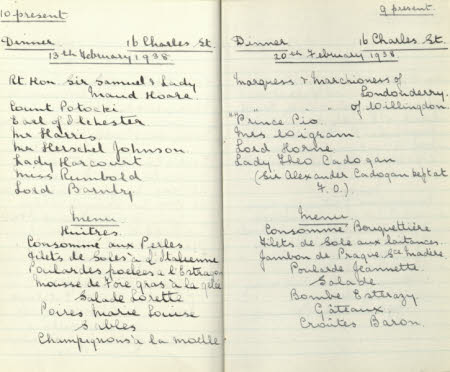 10 present.
Dinner 16 Charles St.
13th February 1938
Rt. Hon. Sir Samuel & Lady
Maud Hoare.
Count Potocki
Earl of Ilchester
Mr Harris
Mr Herschel Johnson
Lady Harcourt
Miss Rumbold
Lord Barnby
Menu
Huitres
Consommé aux Perles
Filets de Soles à l'Italienne
Poulardes poêlées à l'Estragon
Mousse de Foie gras à la gelée
Salade Lorette
Poires Marie Louise
Sablés
Champignons à la Moëlle
9 present.
Dinner 16 Charles St.
20th February 1938
Marquess & Marchioness of
Londonderry.
" " " of Willingdon.
Prince Pio.
Mrs Wigram
Lord Horne
Lady Theo Cadogan
(Sir Alexander Cadogan kept at
F.O.)
Menu
Consommé Bouquettière
Filets de Sole aux laitances.
Jambon de Prague. Sce madère.
Poularde Jeannette.
Salade.
Bombe Esterazy.
Gâteaux.
Croûtes Baron.